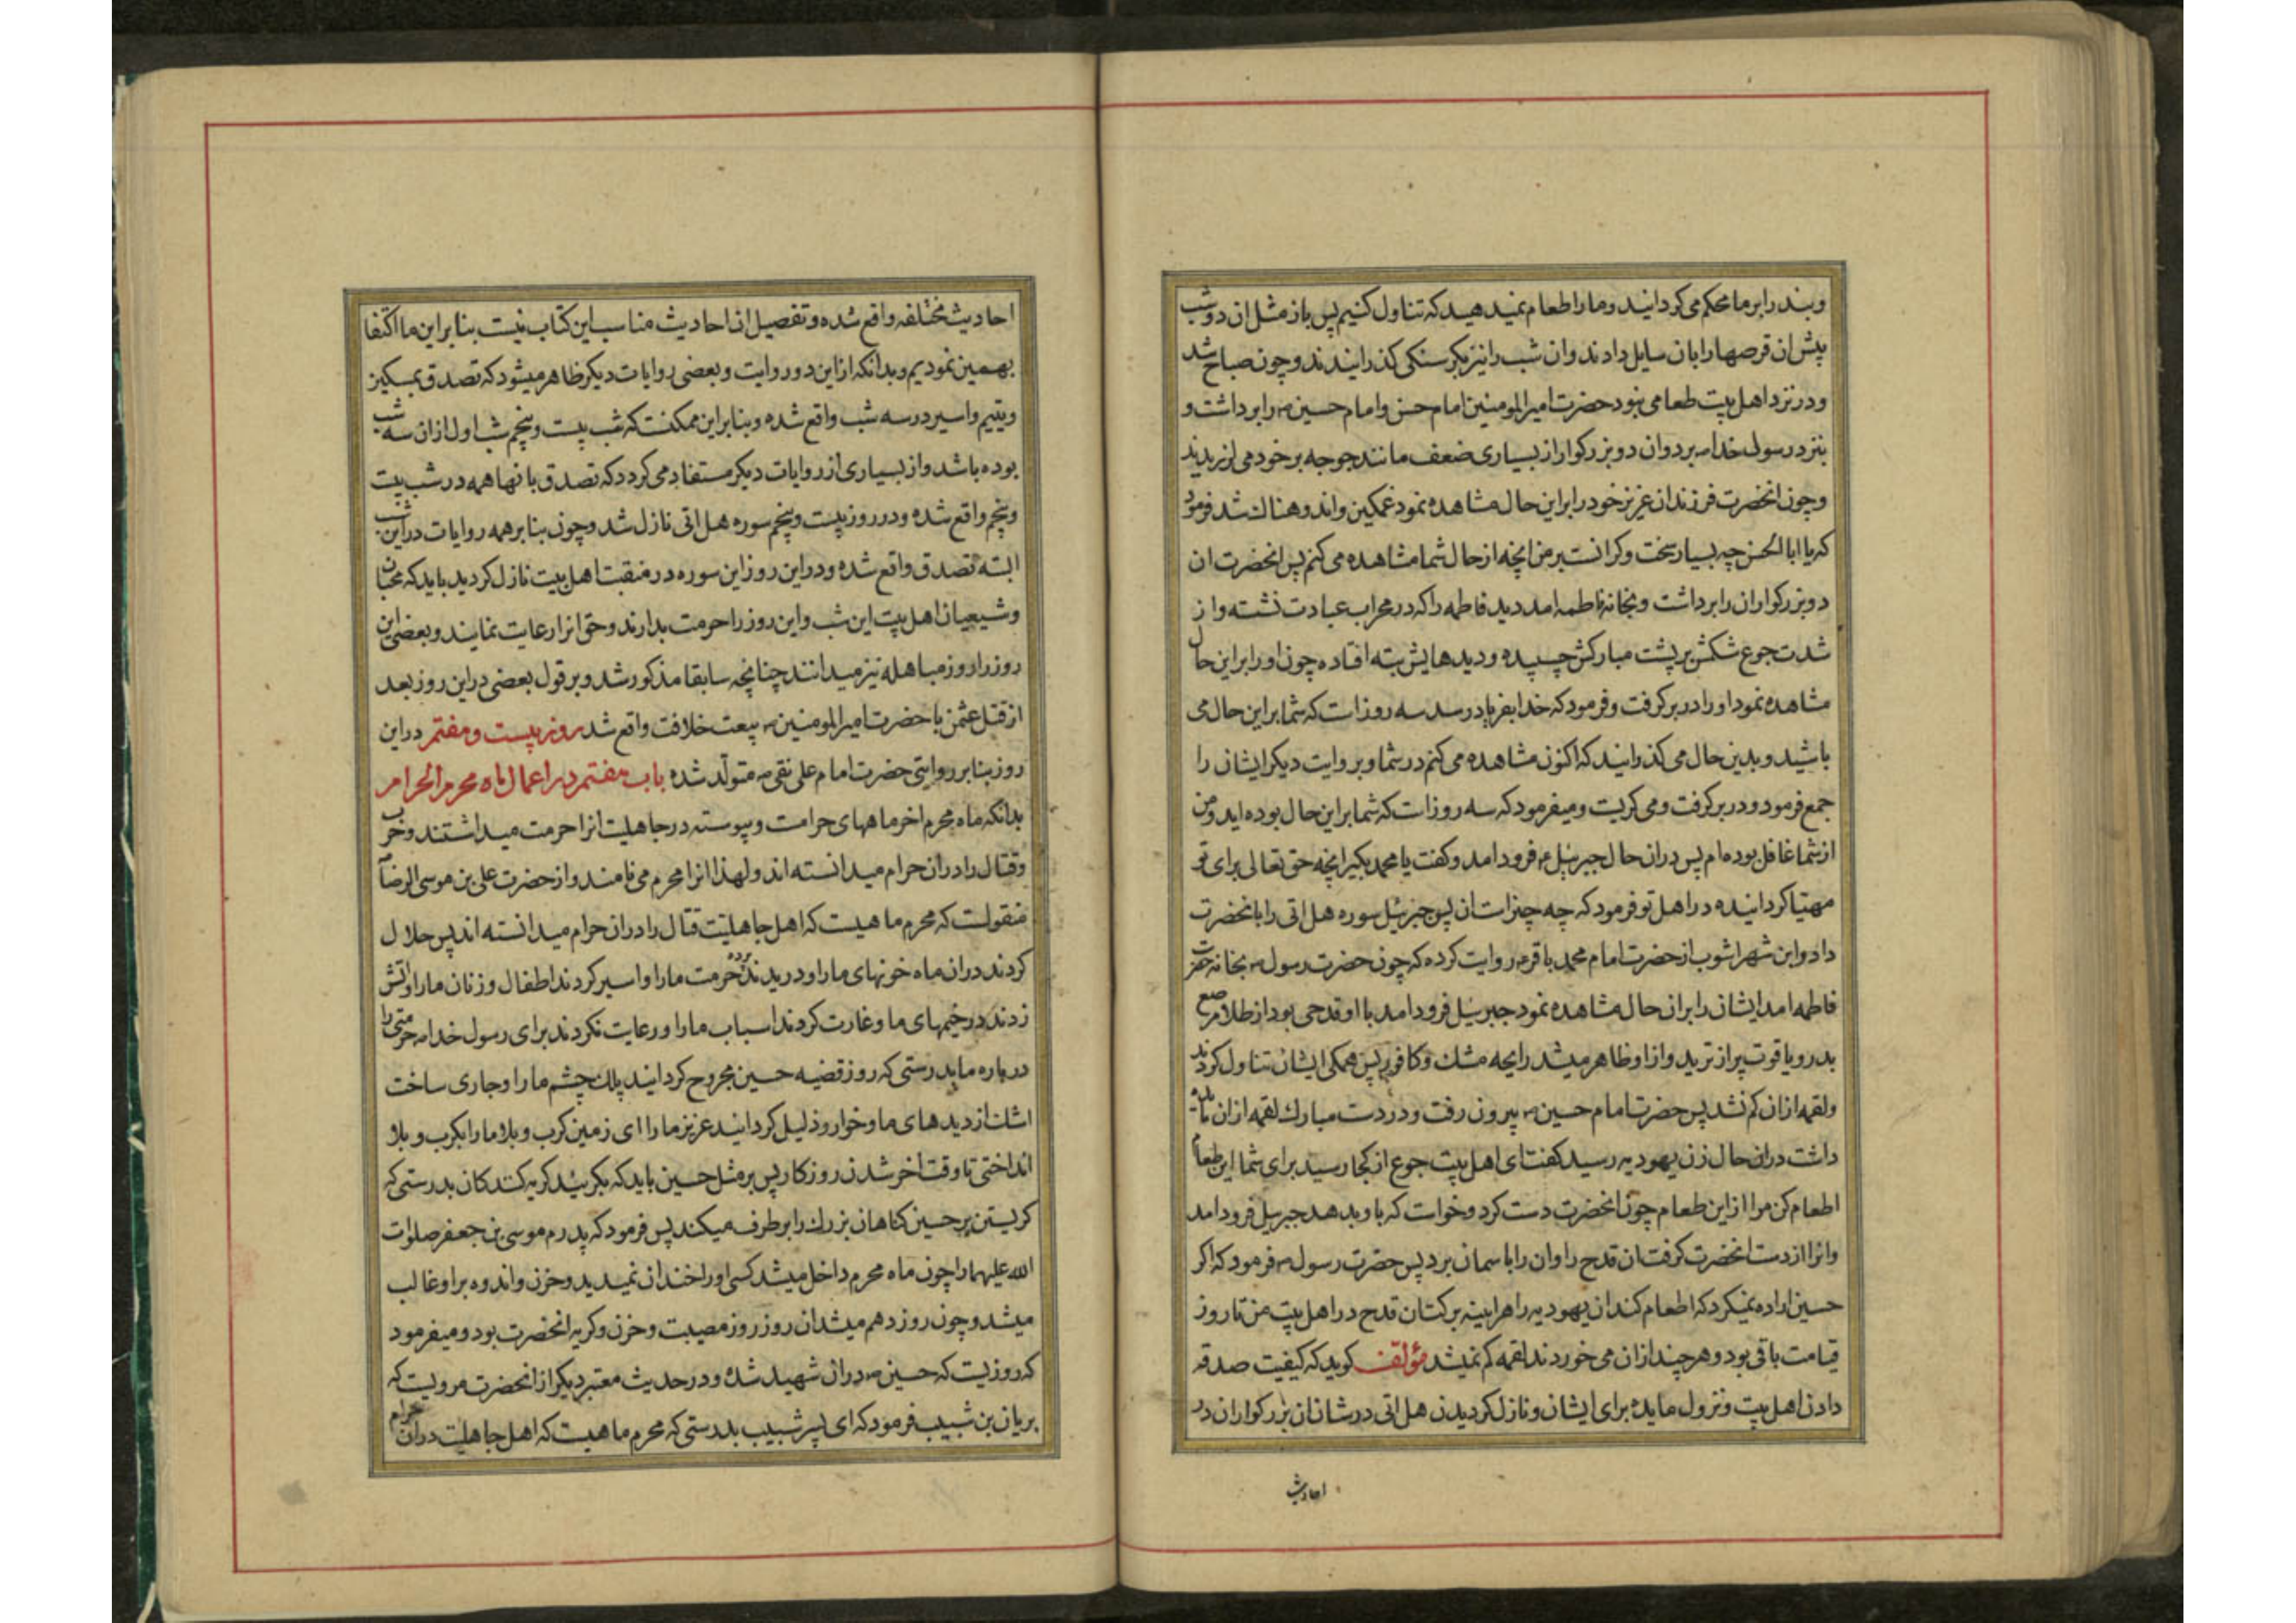 وبند را بر ما محکم می کردانید و ما را طعام نمیدهید که تناول کنیم پس باز مثل ان دو شب
پیش ان قرصها را بان سایل دادند وان شب را نیز بکرسنکی کذرانیدند و چون صباح شد
ودر نزد اهل بیت طعامی نبود حضرت امیرالمومنین امام حسن وامام حسین ع را برداشت و
بنزد رسول خدا ص برد وان دو بزرکوار از بسیاری ضعف مانند جوجه بر خود می لرزیدند
وچون انحضرت فرزندان عزیز خود را براین حال مشاهده نمود غمکین واندوهناک شد فرمود
که یا ابا الحسن چه بسیار سخت وکرانست بر من انچه از حال شما مشاهده می کنم پس انحضرت ان
دو بزرکواران را برداشت وبخانه فاطمه امد دید فاطمه را که در محراب عبادت نشسته واز
شدت جوع شکمش بر پشت مبارکش چسپیده ودیدهایش بته افتاده چون او را براین حال
مشاهده نمود او را در بر کرفت وفرمود که خدا بفریاد رسد سه روز است که شما براین حال می
باشید وبدین حال می کذرانید که اکنون مشاهده می کنم در شما وبروایت دیکر ایشان را
جمع فرمود ودر بر کرفت ومی کریست ومیفرمود که سه روز است که شما براین حال بوده اید ومن
از شما غافل بوده ام پس دران حال جبرئیل ع فرود امد وکفت یا محمد بکیر انچه حق تعالی برای تو
مهیا کردانیده در اهل تو فرمود که چه چیز است ان پس جبرئیل سوره هل اتی را بانحضرت
داد وابن شهر اشوب از حضرت امام محمد باقر ع روایت کرده که چون حضرت رسول ص بخانه حضرت
فاطمه امد ایشان را بران حال مشاهده نمود جبرئیل فرود امد با او قدحی بود از طلا مرصع
بدر ویاقوت پر از ترید واز او ظاهر میشد رایحه مشک وکافور پس همکی ایشان تناول کردند
ولقمه ازان کم نشد پس حضرت امام حسین ع بیرون رفت ودر دست مبارک لقمه ازان مائده
داشت دران حال زن یهودیه رسید کفت ای اهل بیت جوع از کجا رسید برای شما این طعام
اطعام کن مرا ازاین طعام چون انحضرت دست کرد وخواست که باو بدهد جبرئیل فرود امد
وانرا از دست انحضرت کرفت ان قدح را وان را باسمان برد پس حضرت رسول ص فرمود که اکر
حسین اراده نمیکرد که اطعام کند ان یهودیه را هراینه برکت ان قدح در اهل بیت من تا روز
قیامت باقی بود وهر چند ازان می خوردند لقمه کم نمیشد مؤلف کوید که کیفیت صدقه
دادن اهل بیت ونزول مایده برای ایشان ونازل کردیدن هل اتی در شان ان بزرکواران در
احادیث
احادیث مختلفه واقع شده وتفصیل ان احادیث مناسب این کتاب نیست بنابراین ما اکتفا
بهمین نمودیم وبدانکه ازاین دو روایت وبعضی روایات دیکر ظاهر میشود که تصدق بمسکین
ویتیم واسیر در سه شب واقع شده وبنابراین ممکنست که شب بیست وپنجم شب اول ازان سه شب
بوده باشد واز بسیاری از روایات دیکر مستفاد می کردد که تصدق بانها همه در شب بیست
وپنجم واقع شده ودر روز بیست وپنجم سوره هل اتی نازل شد وچون بنابر همه روایات دراین شب
البته تصدق واقع شده ودراین روز این سوره در منقبت اهل بیت نازل کردید باید که محبان
وشیعیان اهل بیت این شب واین روز را حرمت بدارند وحق انرا رعایت نمایند وبعضی این
روز را روز مباهله نیز میدانند چنانچه سابقا مذکور شد وبر قول بعضی دراین روز بعد
از قتل عثمن با حضرت امیرالمومنین ع بیعت خلافت واقع شد روز بیست وهفتم دراین
روز بنابر روایتی حضرت امام علی نقی ع متولد شده باب هفتم در اعمال ماه محرم الحرام
بدانکه ماه محرم اخر ماههای حرامست وپیوسته در جاهلیت انرا حرمت میداشتند وحرب
وقتال را دران حرام میدانسته اند ولهذا انرا محرم می نامند واز حضرت علی بن موسی الرضا ع
منقولست که محرم ماهیست که اهل جاهلیت قتال را دران حرام میدانسته اند پس حلال
کردند دران ماه خونهای ما را ودریدند پرده حرمت ما را واسیر کردند اطفال وزنان ما را واتش
زدند در خیمهای ما وغارت کردند اسباب ما را ورعایت نکردند برای رسول خدا ص حرمتی را
درباره ما بدرستی که روز قضیه حسین مجروح کردانید پلک چشم ما را وجاری ساخت
اشک از دیدهای ما وخوار وذلیل کردانید عزیز ما را ای زمین کرب وبلا ما را بکرب وبلا
انداختی تا وقت اخر شدن روزکار پس بر مثل حسین باید که بکریند کریه کنندکان بدرستی که
کریستن بر حسین کناهان بزرک را برطرف میکند پس فرمود که پدرم موسی بن جعفر صلوات
الله علیهما را چون ماه محرم داخل میشد کسی او را خندان نمیدید وحزن واندوه براو غالب
میشد وچون روز دهم میشد ان روز روز مصیبت وحزن وکریه انحضرت بود ومیفرمود
که روزیست که حسین ع دران شهید شده ودر حدیث معتبر دیکر از انحضرت مرویست که
بریان بن شبیب فرمود که ای پسر شبیب بدرستی که محرم ماهیست که اهل جاهلیت دران حرام